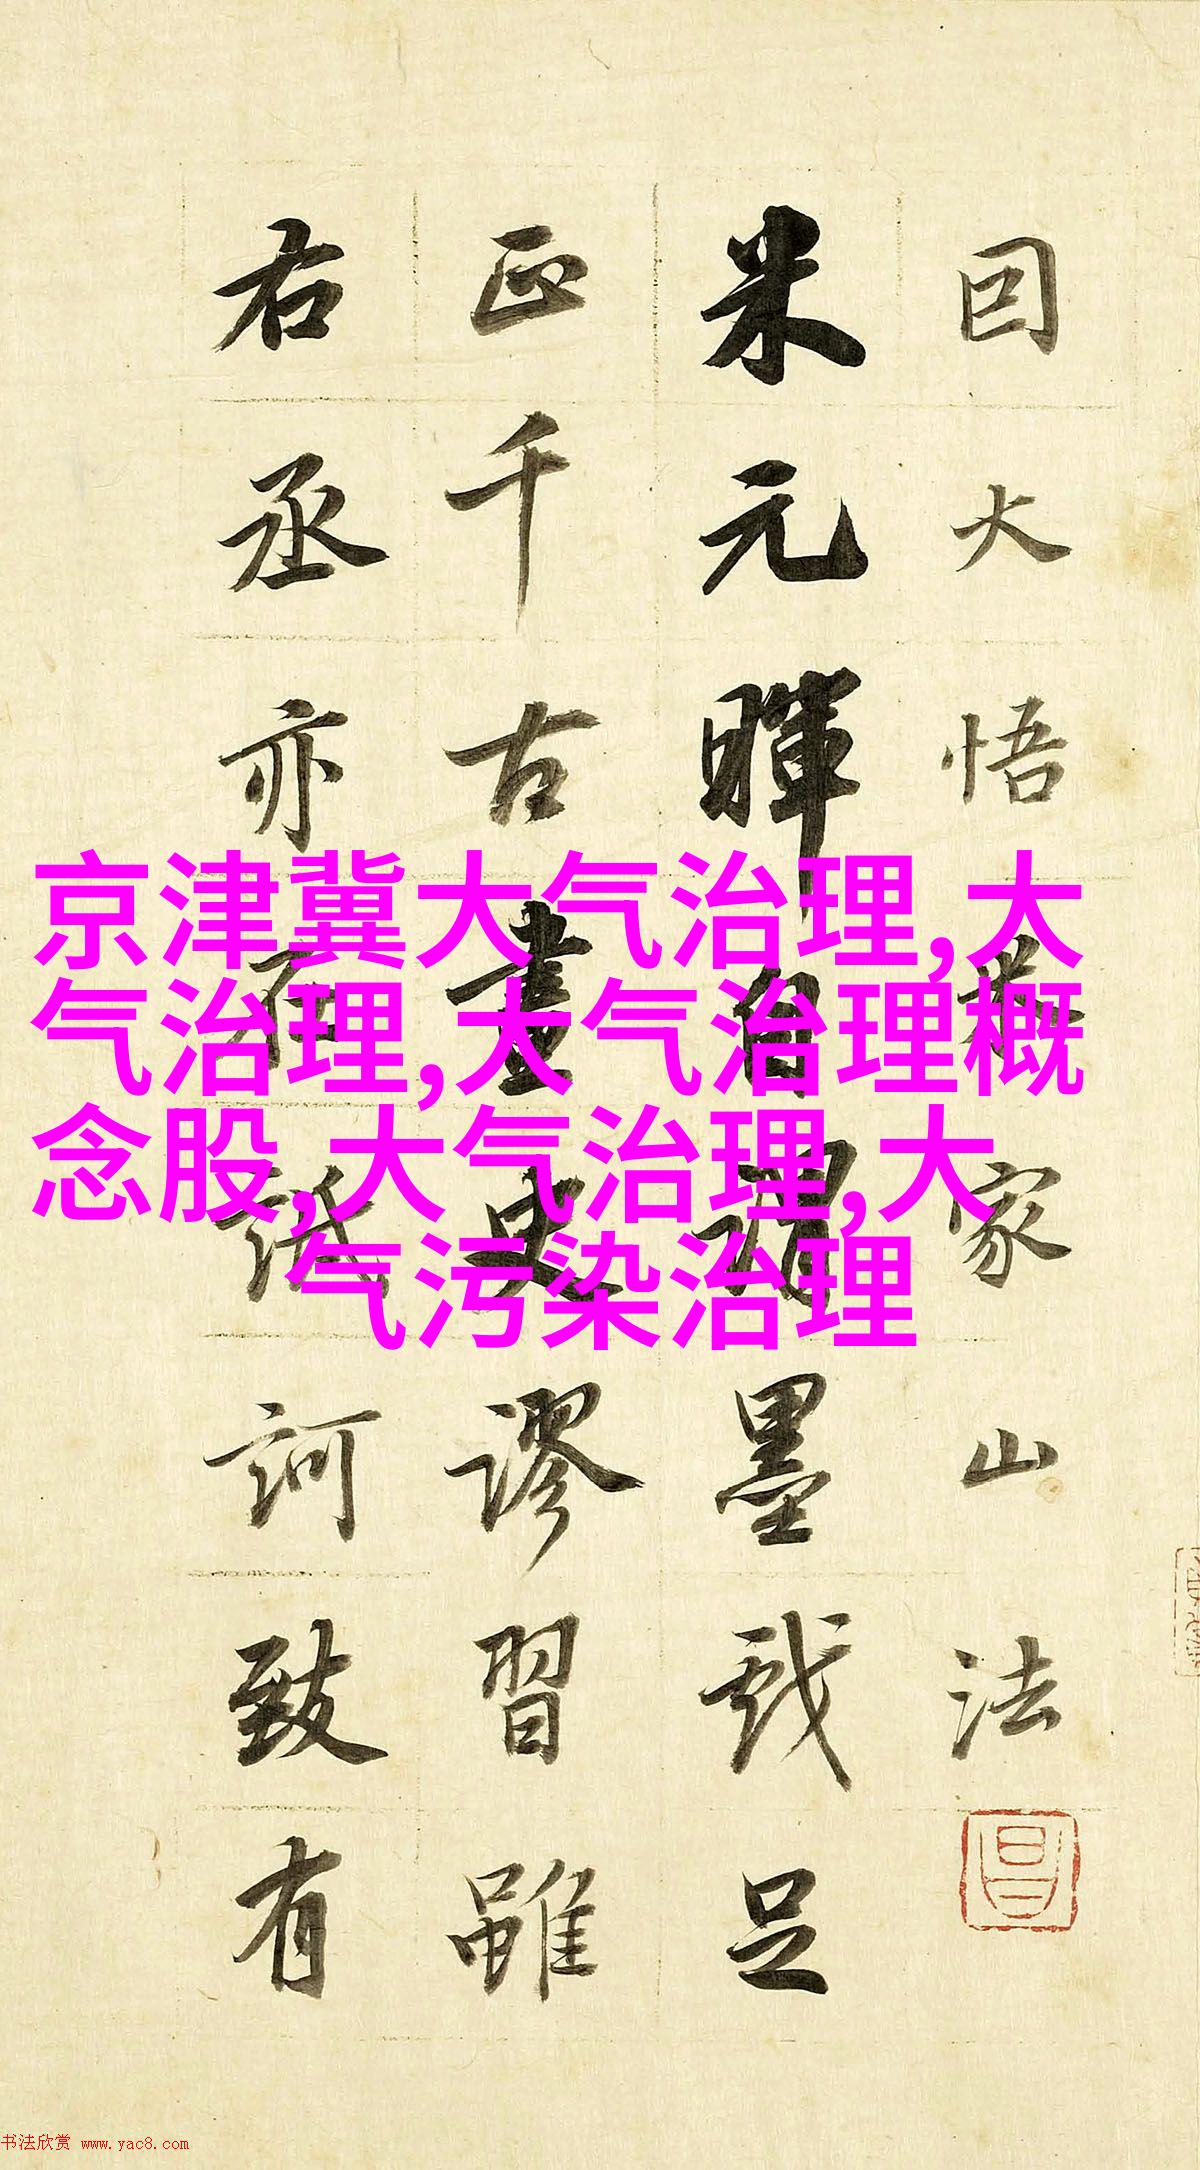 因大悟米家山法
米元暉自謂墨戲足
正千古畫史謬習雖
右丞亦在詆訶致有
京津冀大气治理,大
气治理,大气治理概
念股,大气治理,大
气污染治理
书法欣赏 www.yac8.com